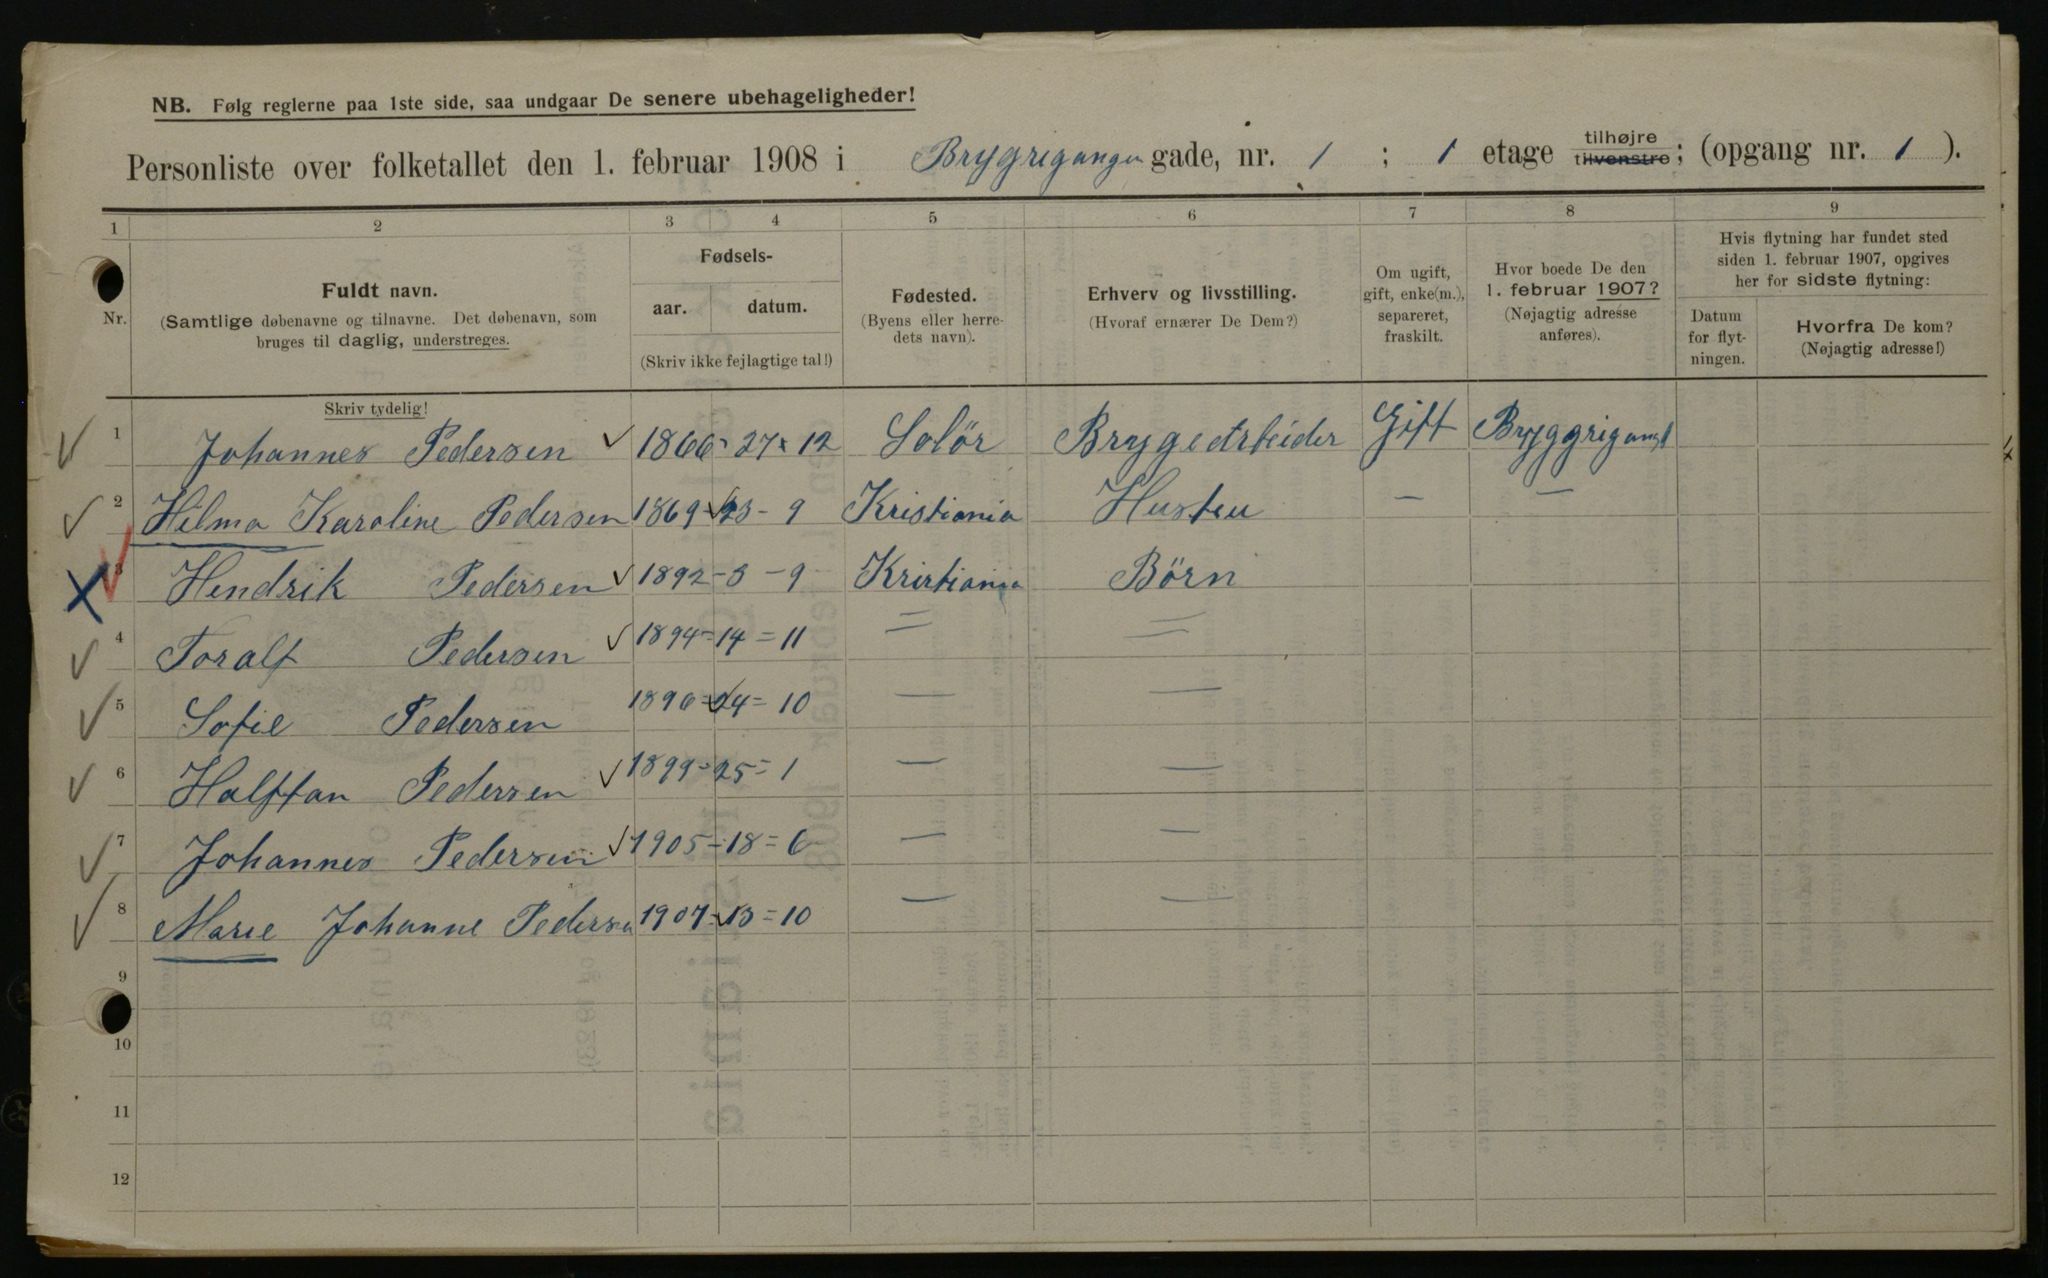 NB. Følg reglerne paa 1ste side, saa undgaar De senere ubehageligheder!
Personliste over folketallet den 1. februar 1908 i Bryggrigangen gade, nr. 1 ; 1 etage tilhøjre tilvenstre; (opgang nr. 1 ).
1 2 3 4 5 6 7 8 9
Nr.
Fuldt navn.
(Samtlige døbenavne og tilnavne. Det døbenavn, som
bruges til daglig, understreges.
Skriv tydelig!
Fødsels-
aar. datum.
(Skriv ikke fejlagtige tal!)
Fødested.
(Byens eller herre-
dets navn).
Erhverv og livsstilling.
(Hvoraf ernærer De Dem?)
Om ugift,
gift, enke(m.),
separeret,
fraskilt.
Hvor boede De den
1. februar 1907?
(Nøjagtig adresse
anføres).
Hvis flytning har fundet sted
siden 1. februar 1907, opgives
her for sidste flytning:
Datum
for flyt-
ningen.
Hvorfra De kom?
(Nøjagtig adresse!)
1 Johannes Pedersen 1866 - 27 - 12 Solör Bryggearbeider Gift Bryggrigang 1
2 Hilma Karoline Pedersen 1869 - 23 - 9 Kristiania Hustru — —
3 Hendrik Pedersen 1892 - 3 - 9 Kristiania Börn
4 Toralf Pedersen 1894 = 14 = 11 = =
5 Sofie Pedersen 1896 = 24 = 10 — —
6 Halftan Pedersen 1899 = 25 = 1 — —
7 Johannes Pedersen 1905 - 18 = 6 — —
8 Marie Johanne Pedersen 1907 = 13 = 10 — —
9
10
11
12